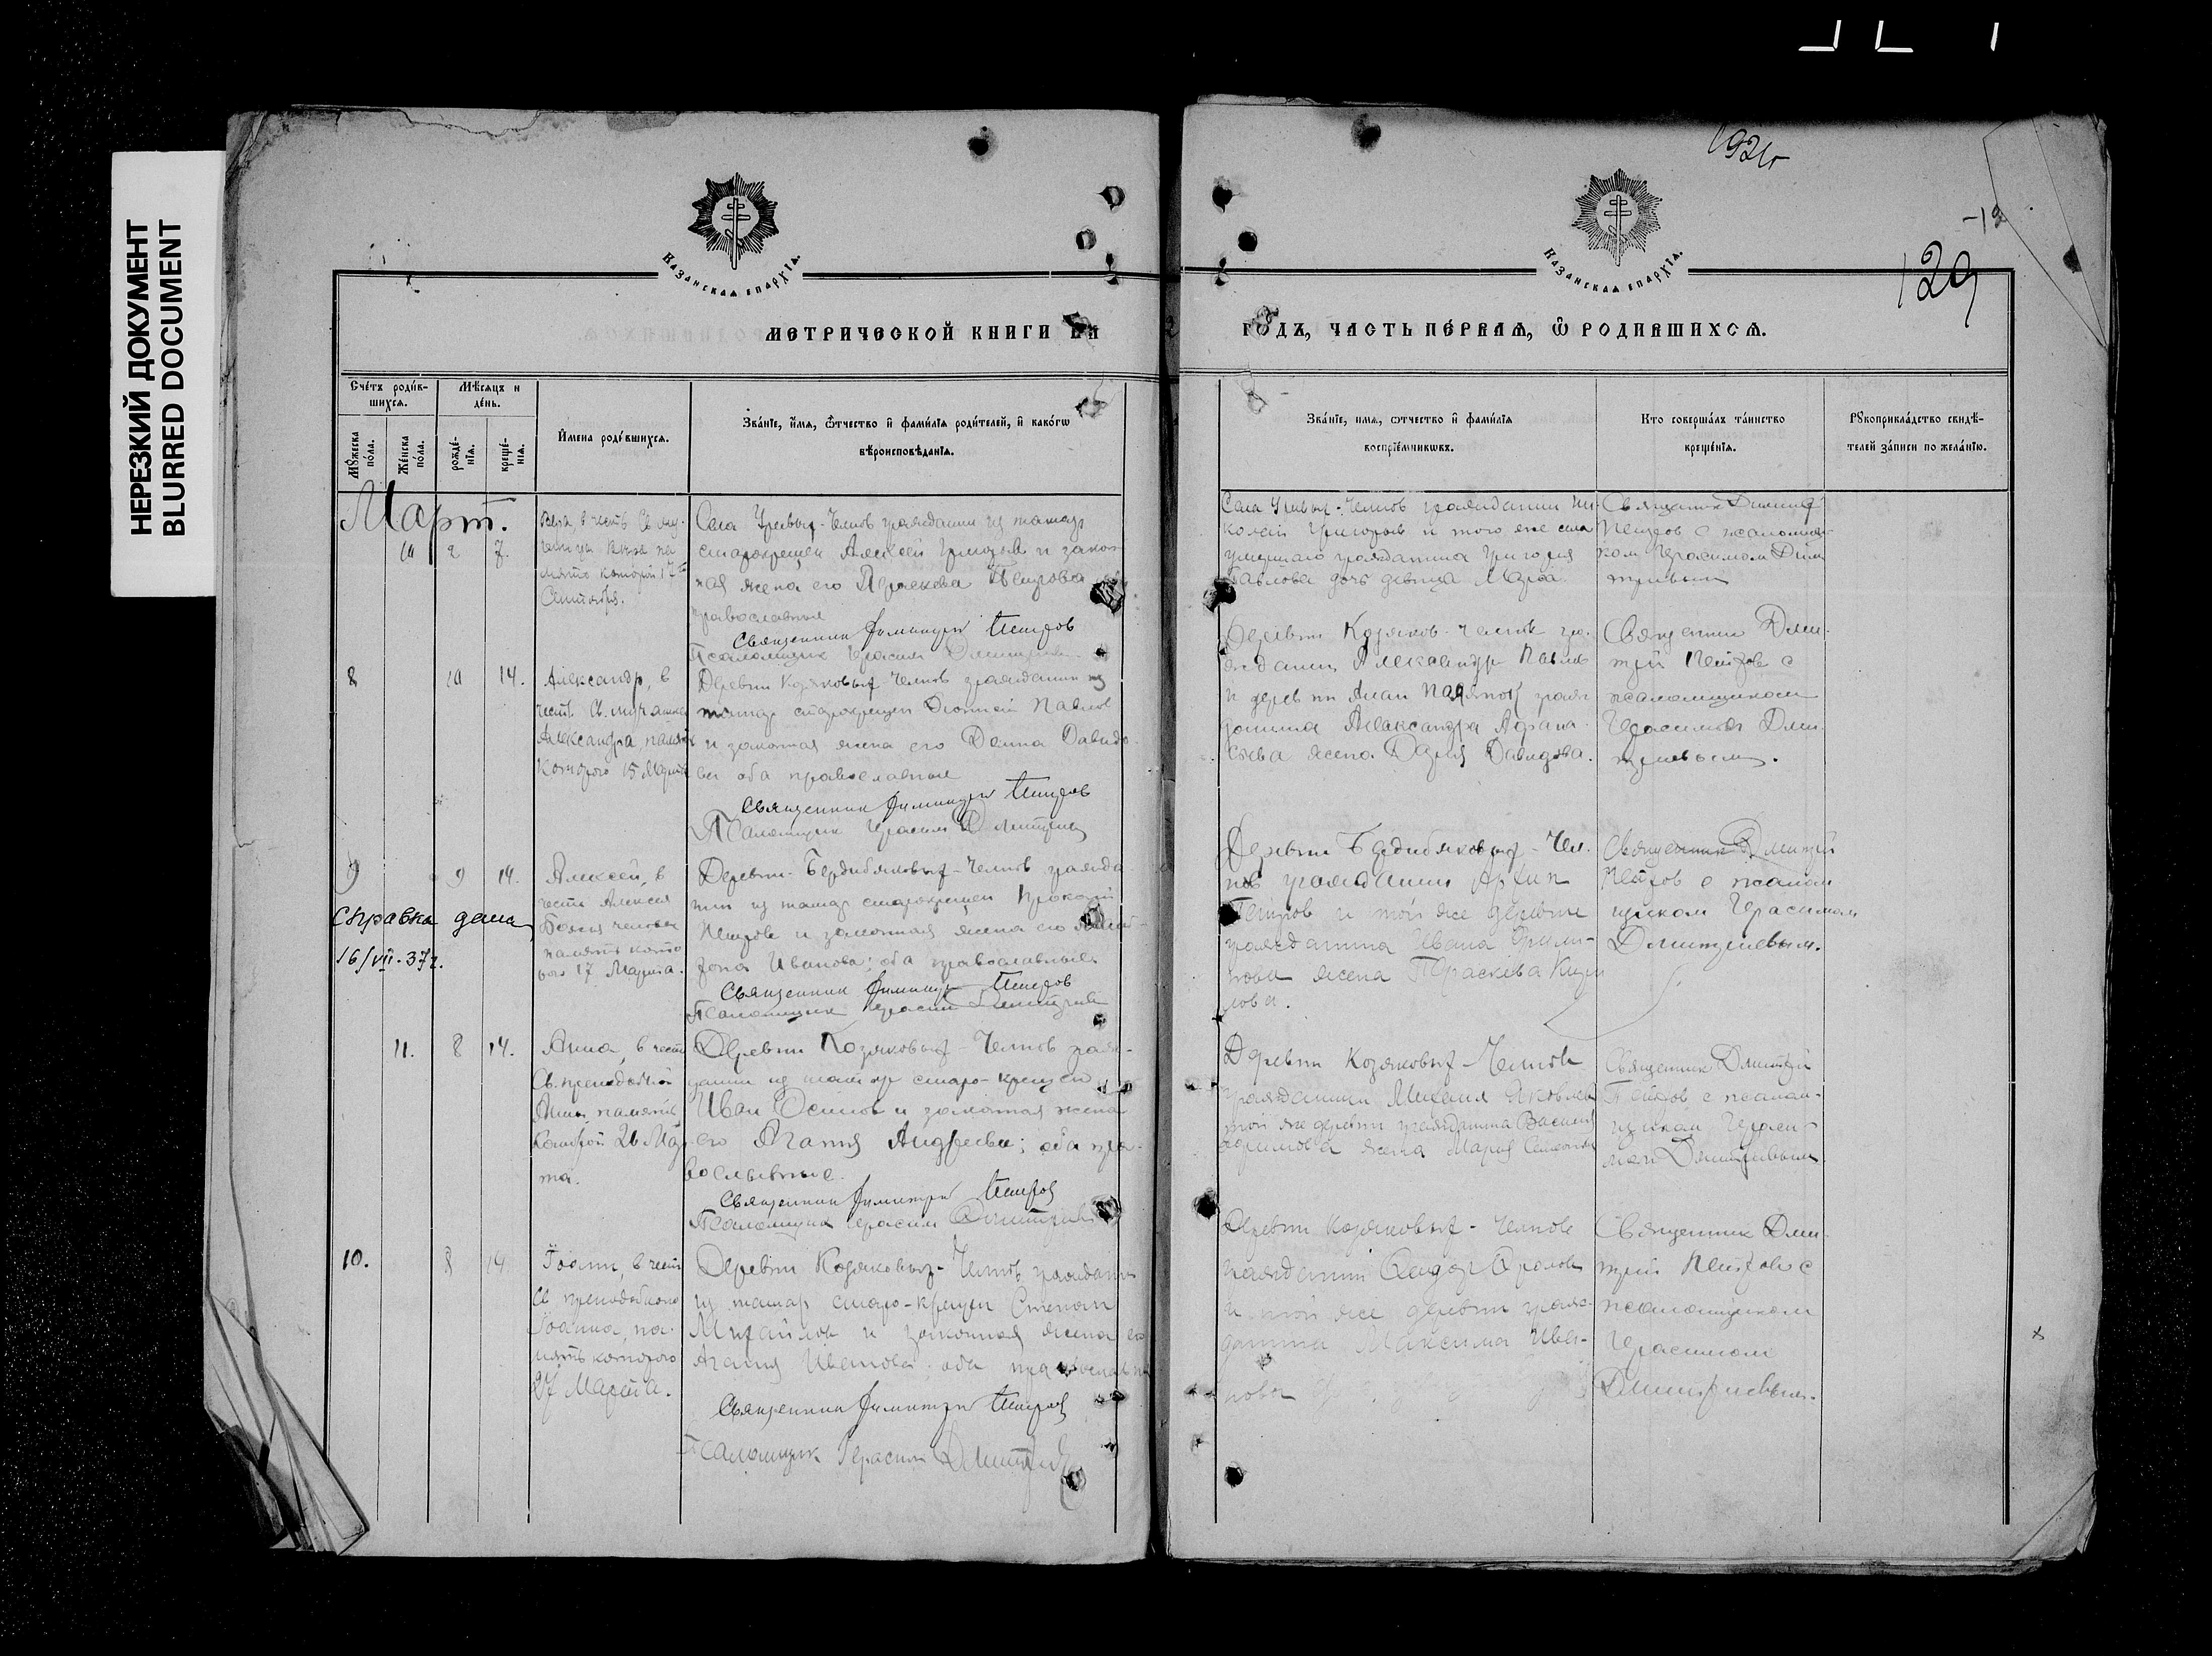 НЕРЕЗКИЙ ДОКУМЕНТ
BLURRED DOCUMENT
1921г
129
Казанская епархія.
Казанская епархія.
МЕТРИЧЕСКОЙ КНИГИ НА
ГОДЪ, ЧАСТЬ ПЕРВАЯ, Ѡ РОДИВШИХСЯ.
Счетъ родив-
шихся.
Мѣсяцъ и
день.
Мужеска
пола.
Женска
пола.
рожде-
нія.
креще-
нія.
Имена родившихся.
Званіе, имя, ѿчество и фамилія родителей, и какогѡ
вѣроисповѣданія.
Званіе, имя, ѿчество и фамилія
воспріемниковъ.
Кто совершалъ таинство
крещенія.
Рукоприкладство свидѣ-
телей записи по желанію.
Март.
10 2 7.
память которой 17
Сентября.
старокрещен Алексей Григорьев и закон
ная жена его Параскева Петрова
православные
Священник Димитрий Петров
Псаломщик Герасим Дмитриев
граждании
колай Григорьев и того же села
умершаго гражданина Григория
Павлова дочь девица
Петров с псаломщи
ком Герасимом Дми
триевым
8 10 14.
Александр, в
честь Св. мученика
Александра, память
которого 15 Марта
Деревни Козяковых-Челнов гражданин из
татар старокрещен Павлов
и законная жена его Давидо
ва оба православные
Священник Димитрий Петров
Псаломщик Герасим Дмитриев
Деревни Козяков-Челнов гра-
жданин Александр Павлов
и деревни гражд
данина Александра Афана-
сьева жена Дария Давидова.
Священник Дми-
трий Петров с
псаломщиком
Герасимом Дми
триевым.
9 9 14.
Алексей, в
честь Алексея
Божия человека
память кото
рого 17 Марта.
Справка дана
16/VII-37г.
Деревни Бердибяковых-Челнов гражда
нин из татар старокрещен
Петров и законная жена его
Иванова; оба православные
Священник Димитрий Петров
Псаломщик Герасим Дмитриев
Деревни Бердибяковых-Чел-
нов гражданин Архип
Петров и той же деревни
гражданина Ивана Филип-
пова жена Параскева Кирил
лова.
Священник Дмитрий
Петров с псалом
щиком Герасимом
Дмитриевым.
11. 8 14.
Анна, в честь
Св. преподобной
Анны память
которой 26 Мар
та.
Деревни Козяковых-Челнов граж-
данин из татар старо-крещен
Иван Осипов и законная жена
его Агапия Андреева; оба пра-
вославные.
Священник Димитрий Петров
Псаломщик Герасим Дмитриев
Деревни Козяковых-Челнов
гражданин Михаил Яковлев
той же деревни гражданина Василия
жена Мария
Священник Дмитрий
Петров с псалом-
щиком Гераси-
мом Дмитриевым
10. 8 14
Іоанн, в честь
Св преподобного
Іоанна, па-
мять которого
27 Марта.
Деревни Козяковых-Челнов гражданин
из татар старо-крещен Степан
Михайлов и законная жена его
Агапия Иванова оба православные
Священник Димитрий Петров
Псаломщик Герасим Дмитриев
Деревни Козяковых-Челнов
гражданин Фролов
и той же деревни граж-
данина Максима Ива-
нова
Священник Дми-
трий Петров с
псаломщиком
Герасимом
Дмитриевым.